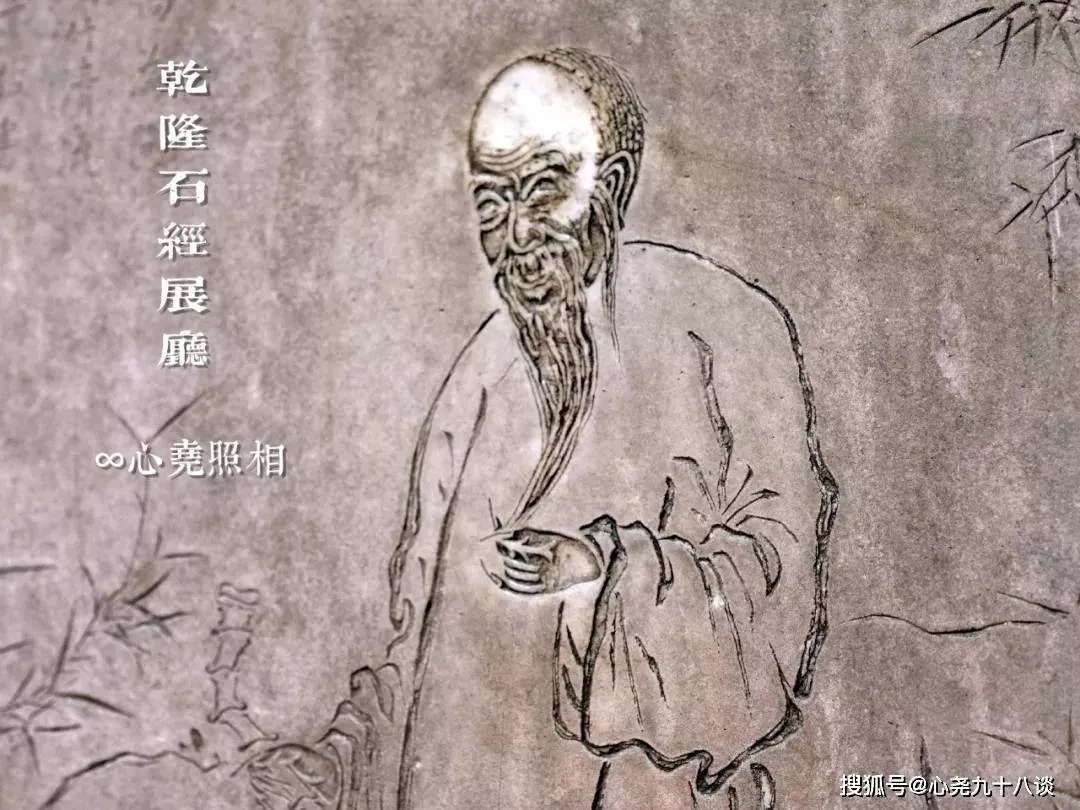 乾隆石經展廳
∞心堯照相
搜狐号@心尧九十八谈